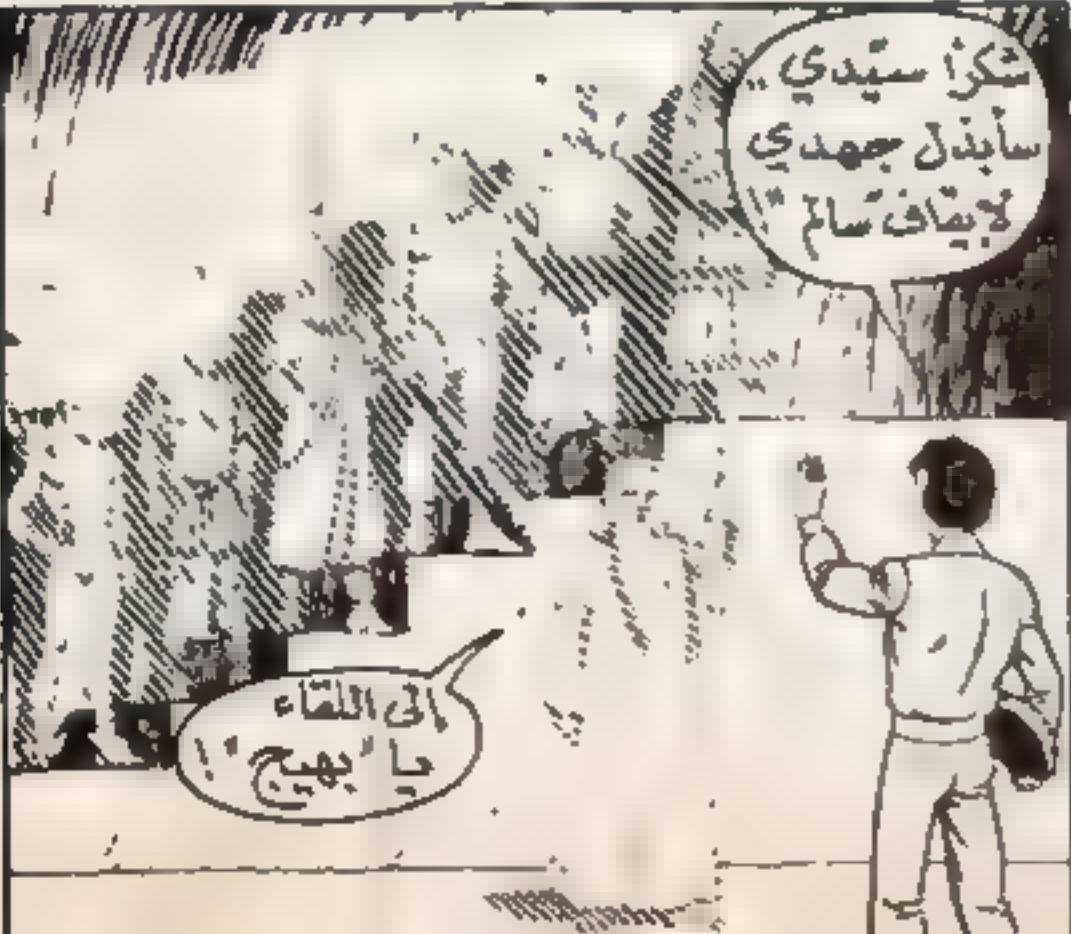 شكرًا سيّدي ..
سأبذل جهدي
لإيقاف "سالم"
الى اللقاء
يا "بهيج" !